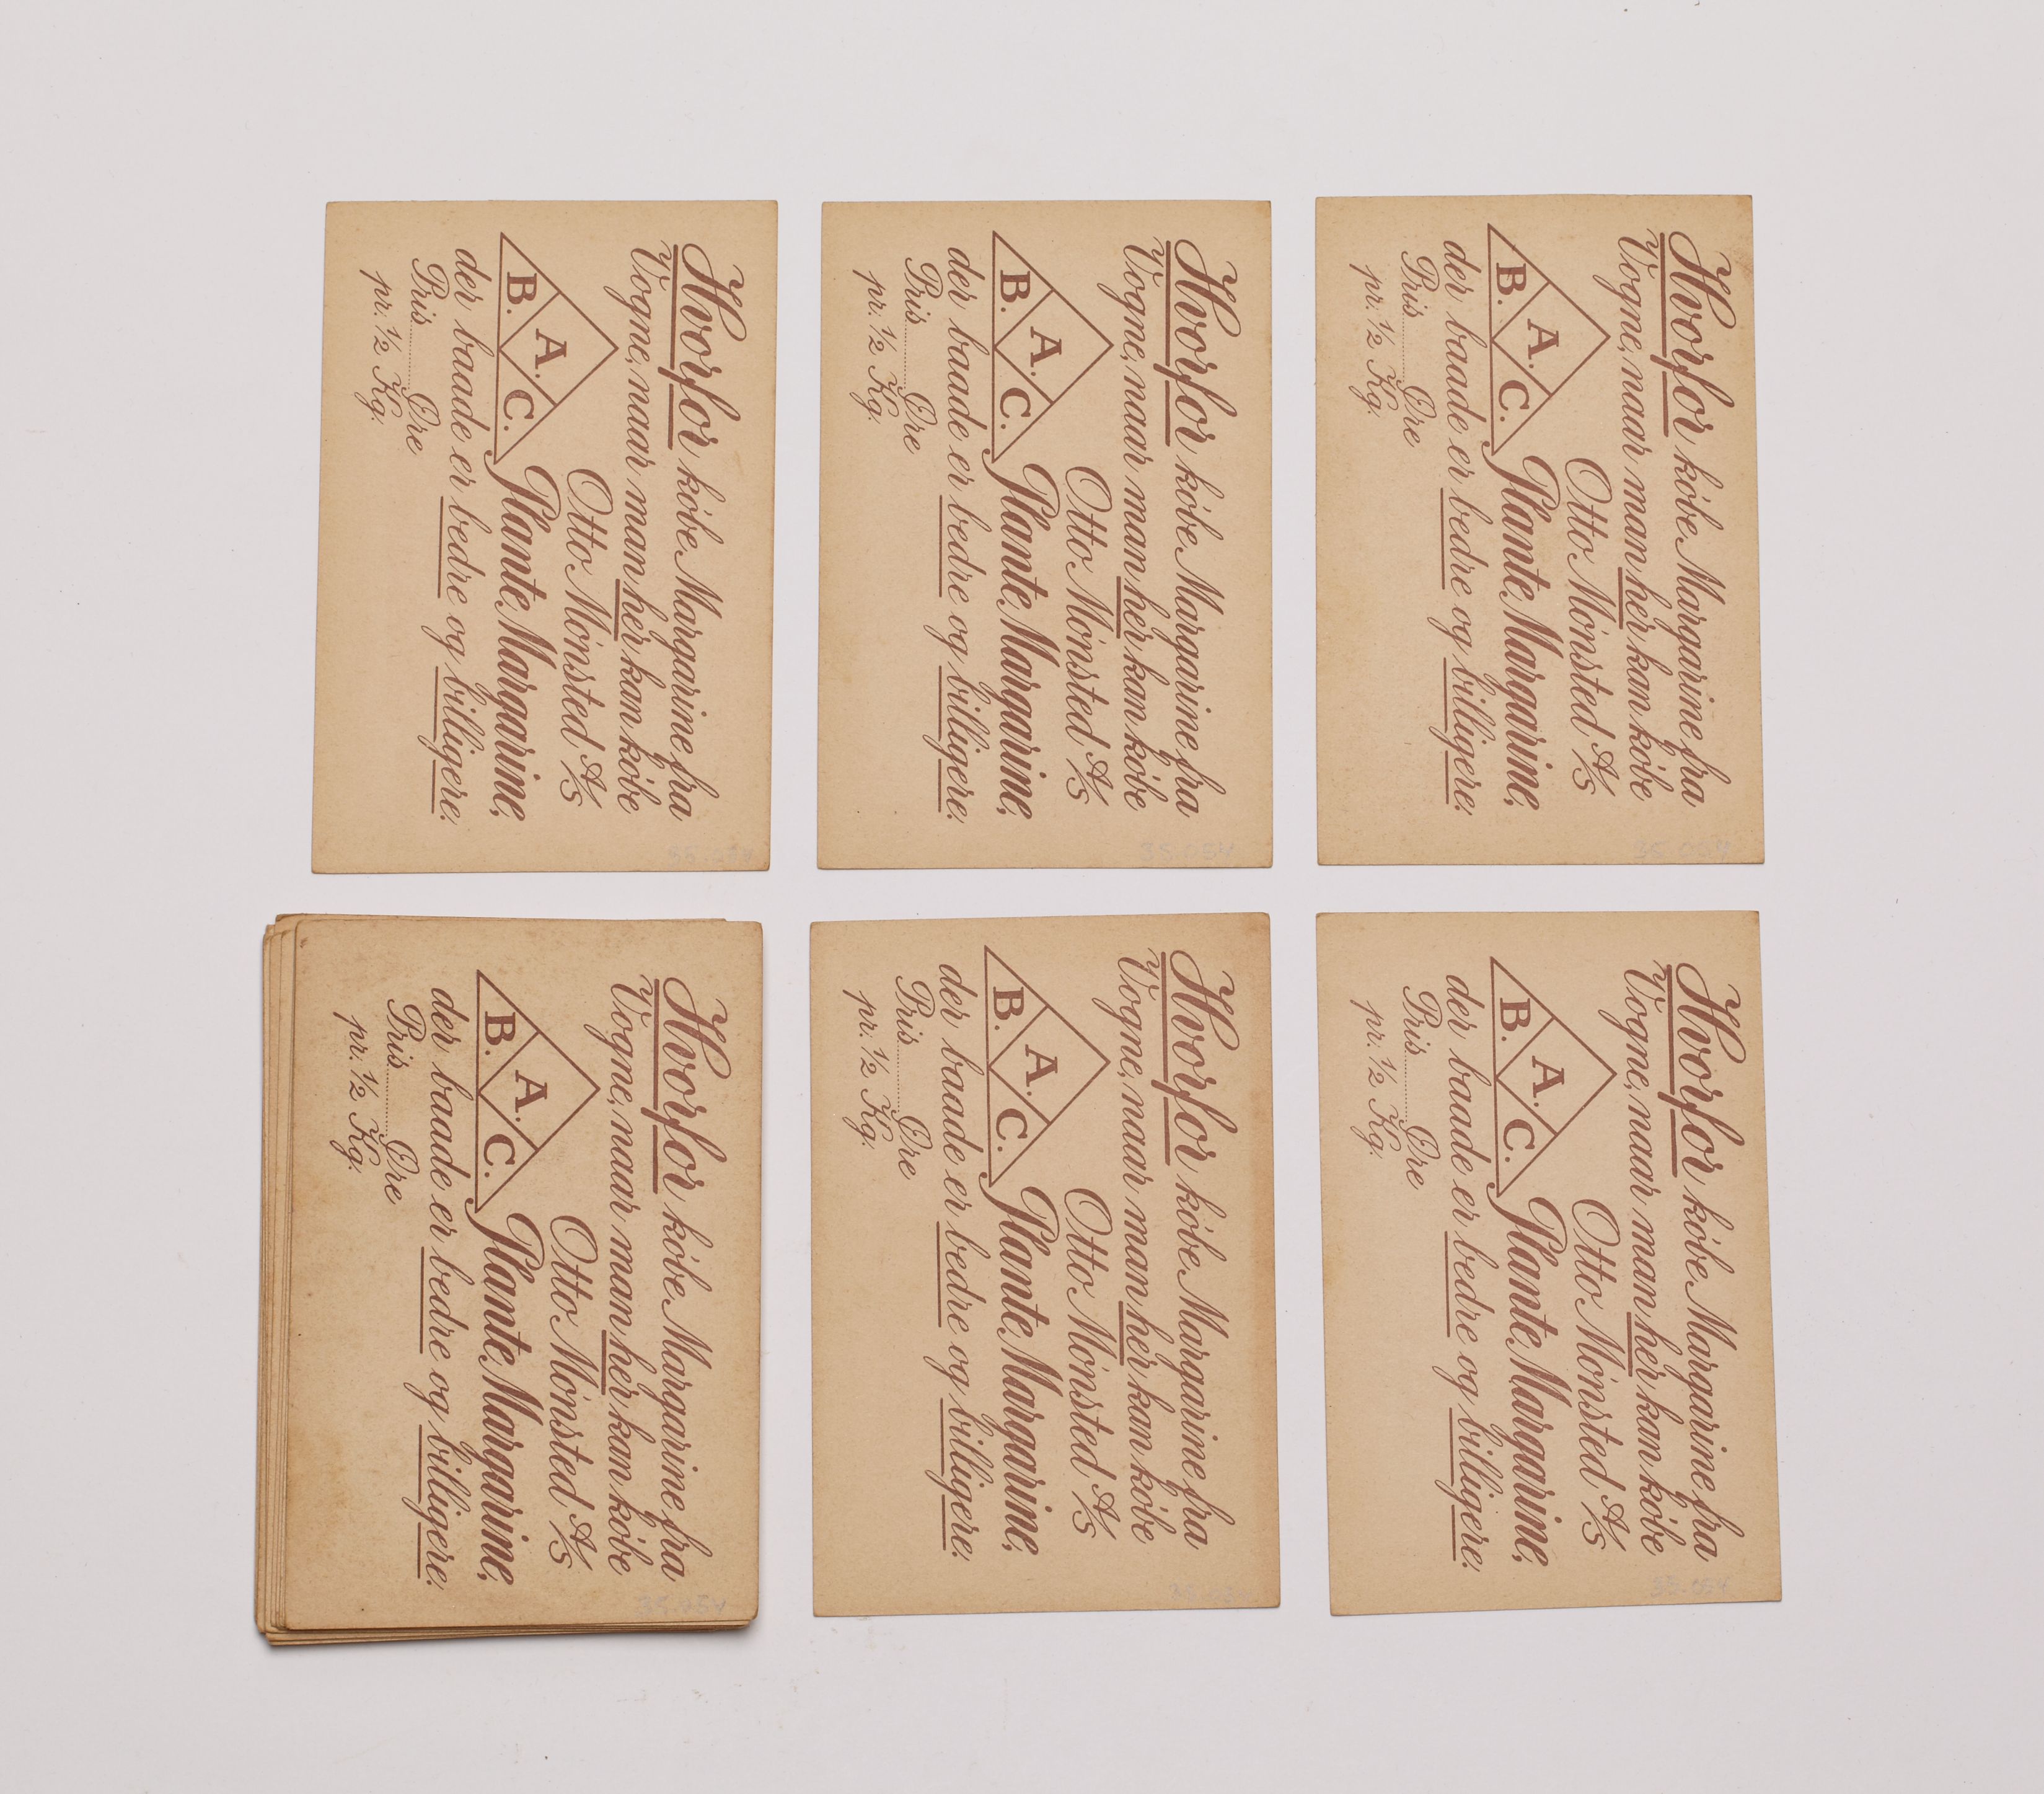 Hvorfor kóbe Margarine fra
Vogne, naar man her kan kóbe
Otto Mónsted A/S
A.
B. C.
Plante Margarine,
der baade er bedre og billigere.
Pris Øre
pr. 1/2 Kg.
Hvorfor kóbe Margarine fra
Vogne, naar man her kan kóbe
Otto Mónsted A/S
A.
B. C.
Plante Margarine,
der baade er bedre og billigere.
Pris Øre
pr. 1/2 Kg.
Hvorfor kóbe Margarine fra
Vogne, naar man her kan kóbe
Otto Mónsted A/S
A.
B. C.
Plante Margarine,
der baade er bedre og billigere.
Pris Øre
pr. 1/2 Kg.
Hvorfor kóbe Margarine fra
Vogne, naar man her kan kóbe
Otto Mónsted A/S
A.
B. C.
Plante Margarine,
der baade er bedre og billigere.
Pris Øre
pr. 1/2 Kg.
Hvorfor kóbe Margarine fra
Vogne, naar man her kan kóbe
Otto Mónsted A/S
A.
B. C.
Plante Margarine,
der baade er bedre og billigere.
Pris Øre
pr. 1/2 Kg.
Hvorfor kóbe Margarine fra
Vogne, naar man her kan kóbe
Otto Mónsted A/S
A.
B. C.
Plante Margarine,
der baade er bedre og billigere.
Pris Øre
pr. 1/2 Kg.